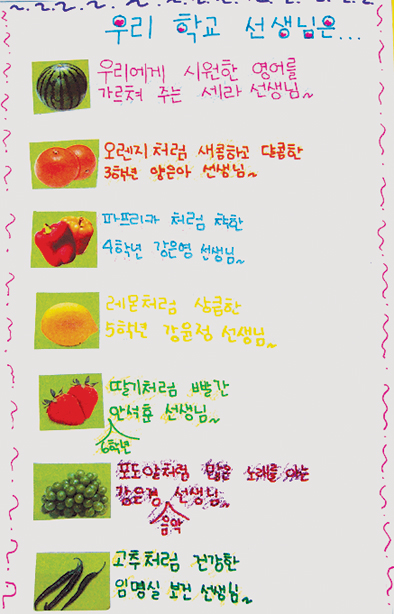 우리 학교 선생님은...
우리에게 시원한 영어를
가르쳐 주는 세라 선생님~
오렌지처럼 새콤하고 달콤한
3학년 양은아 선생님~
파프리카 처럼 착한
4학년 강은영 선생님~
레몬처럼 상큼한
5학년 강윤정 선생님~
딸기처럼 빨간
안석훈 선생님~
6학년
포도알처럼 많은 노래를 아는
강은경 선생님~
음악
고추처럼 건강한
임명실 보건 선생님~